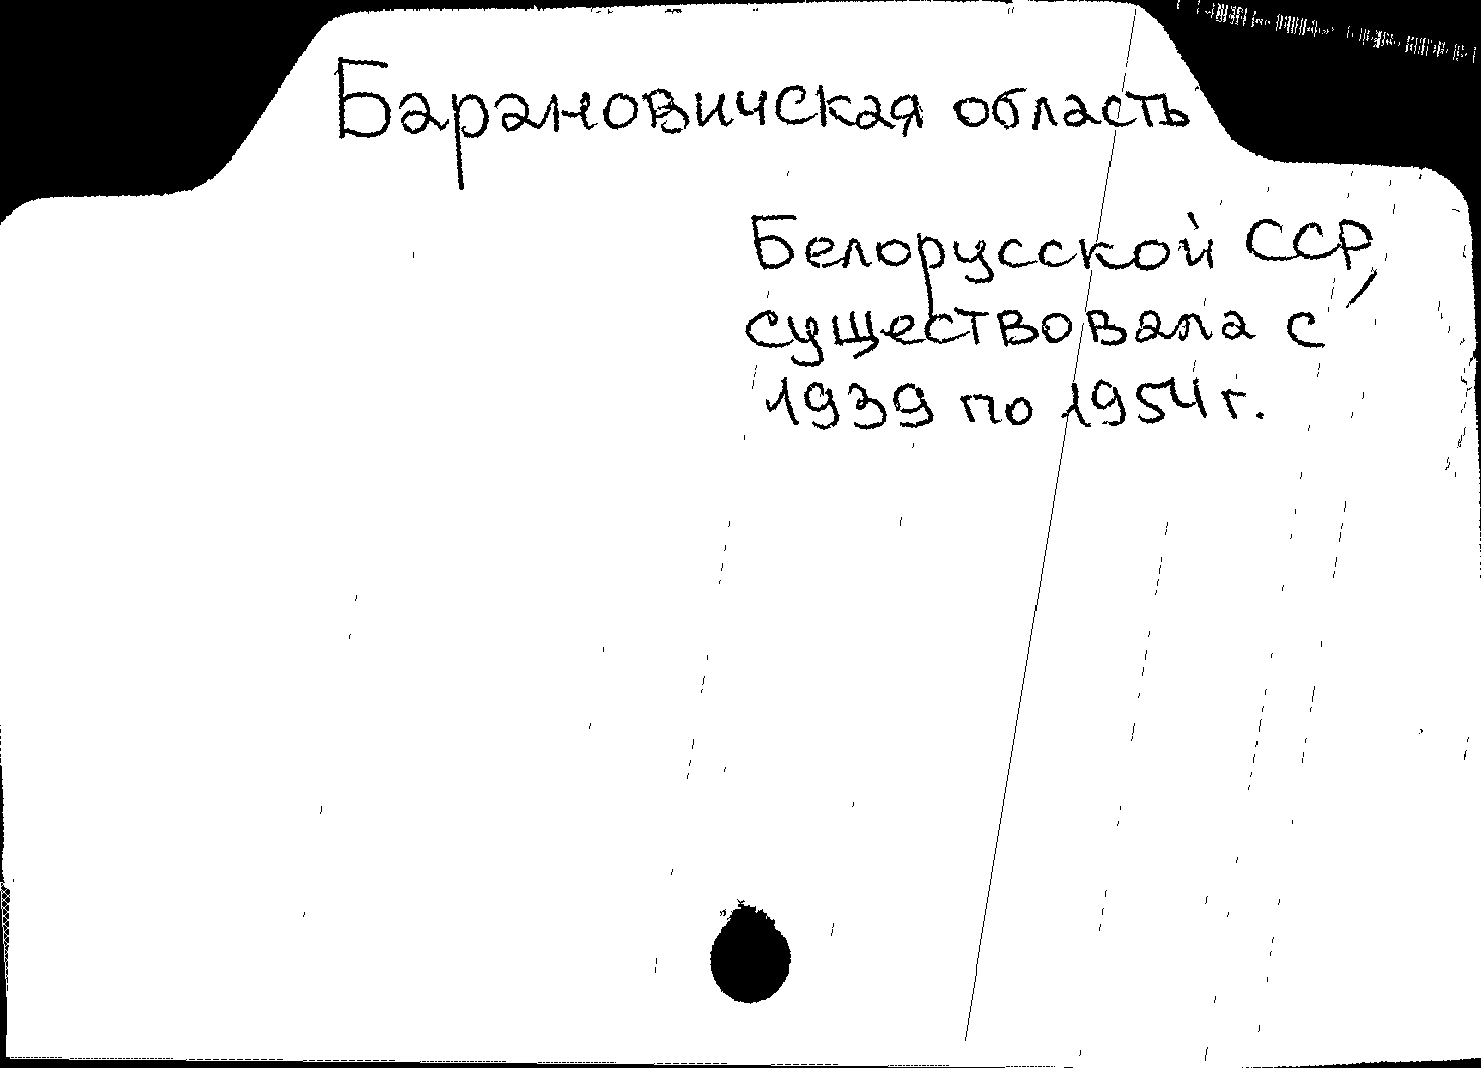 Барановичская область
Белорусской ССР,
существовала с
1939 по 1954 г.